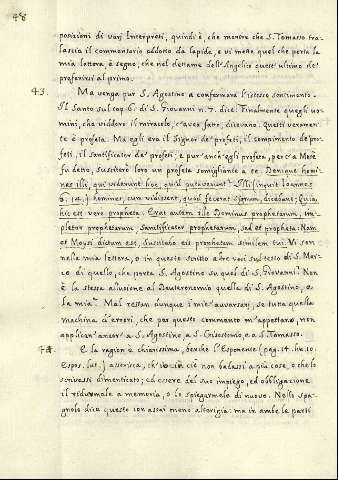 48
posizioni di varj Interpreti, quindi è, che mentre che S. Tomaso tra-
lascia il commentario addotto da lapide, e vi mette quel che porta la
mia lettera, è segno, che nel dettame dell'Angelico quest'ultimo de'
preferirsi al primo.
43. Ma venga pur S. Agostino a confermare l'istesso sentimento.
Il Santo sul cap. 6. di S. Giovanni n. 7. dice: Finalmente quegli uo-
mini, che viddero il miracolo, c'avea fatto, dicevano: Questi veramen-
te è profeta. Ma egli era il Signor de' profeti, il compimento de' pro-
feti, il santificator de' profeti; e pur anch'egli profeta, perc'a Mosè
fu detto, susciterò loro un profeta somigliante a te. Denique homi-
nes illi, qui viderunt hoc, quid putaverunt? Illi (inquit Ioannes
6. 14.) homines, cum vidissent, quod fecerat signum, dicebant: Quia
hic est vere propheta. Erat autem ille Dominus prophetarum, im-
pletor prophetarum, sanctificator prophetarum, sed et propheta: Nam
et Moysi dictum est, suscitabo eis prophetam similem tui. Vi son
nella mia lettera, o in questo scritto altre voci sul testo di S. Mar-
co di quello, che porta S. Agostino su quel di S. Giovanni? Non
è la stessa allusione al Deuteronomio quella di S. Agostino, e
la mia? Mal restan dunque i miei avversarj, se tutta quella
machina d'errori, che per questo commento m'appettano, non
applican' ancor' a S. Agostino, a S. Crisostomo, e a S. Tomaso.
44. E la ragion è chiarissima, perchè l'Esponente (pag. 14. hu. 10.
Espos. lat.) asserisca, ch'io in ciò non badassi a più cose, o che lo
scrivessi dimenticato; ed essere del suo impiego, ed obbligazione
il ridurmelo a memoria, o lo spiegarmelo di nuovo. Nello spa-
gnolo dice questo con assai meno alterigia: ma in ambe le parti